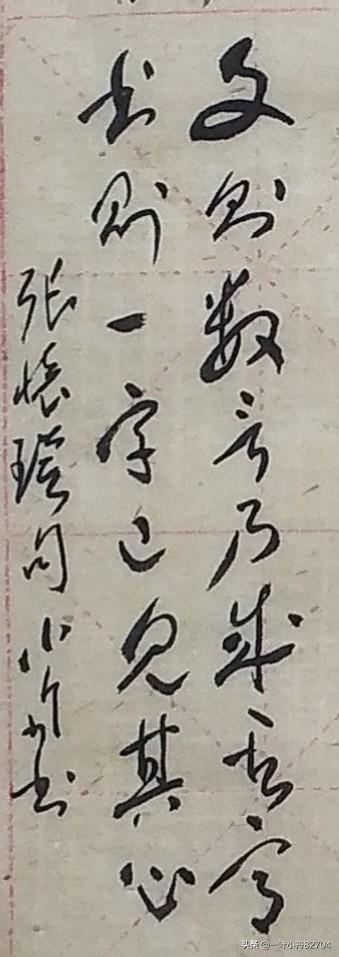 文则数言乃成其意
书则一字已见其心
张怀瓘句小书
头条 @一叶小舟82704